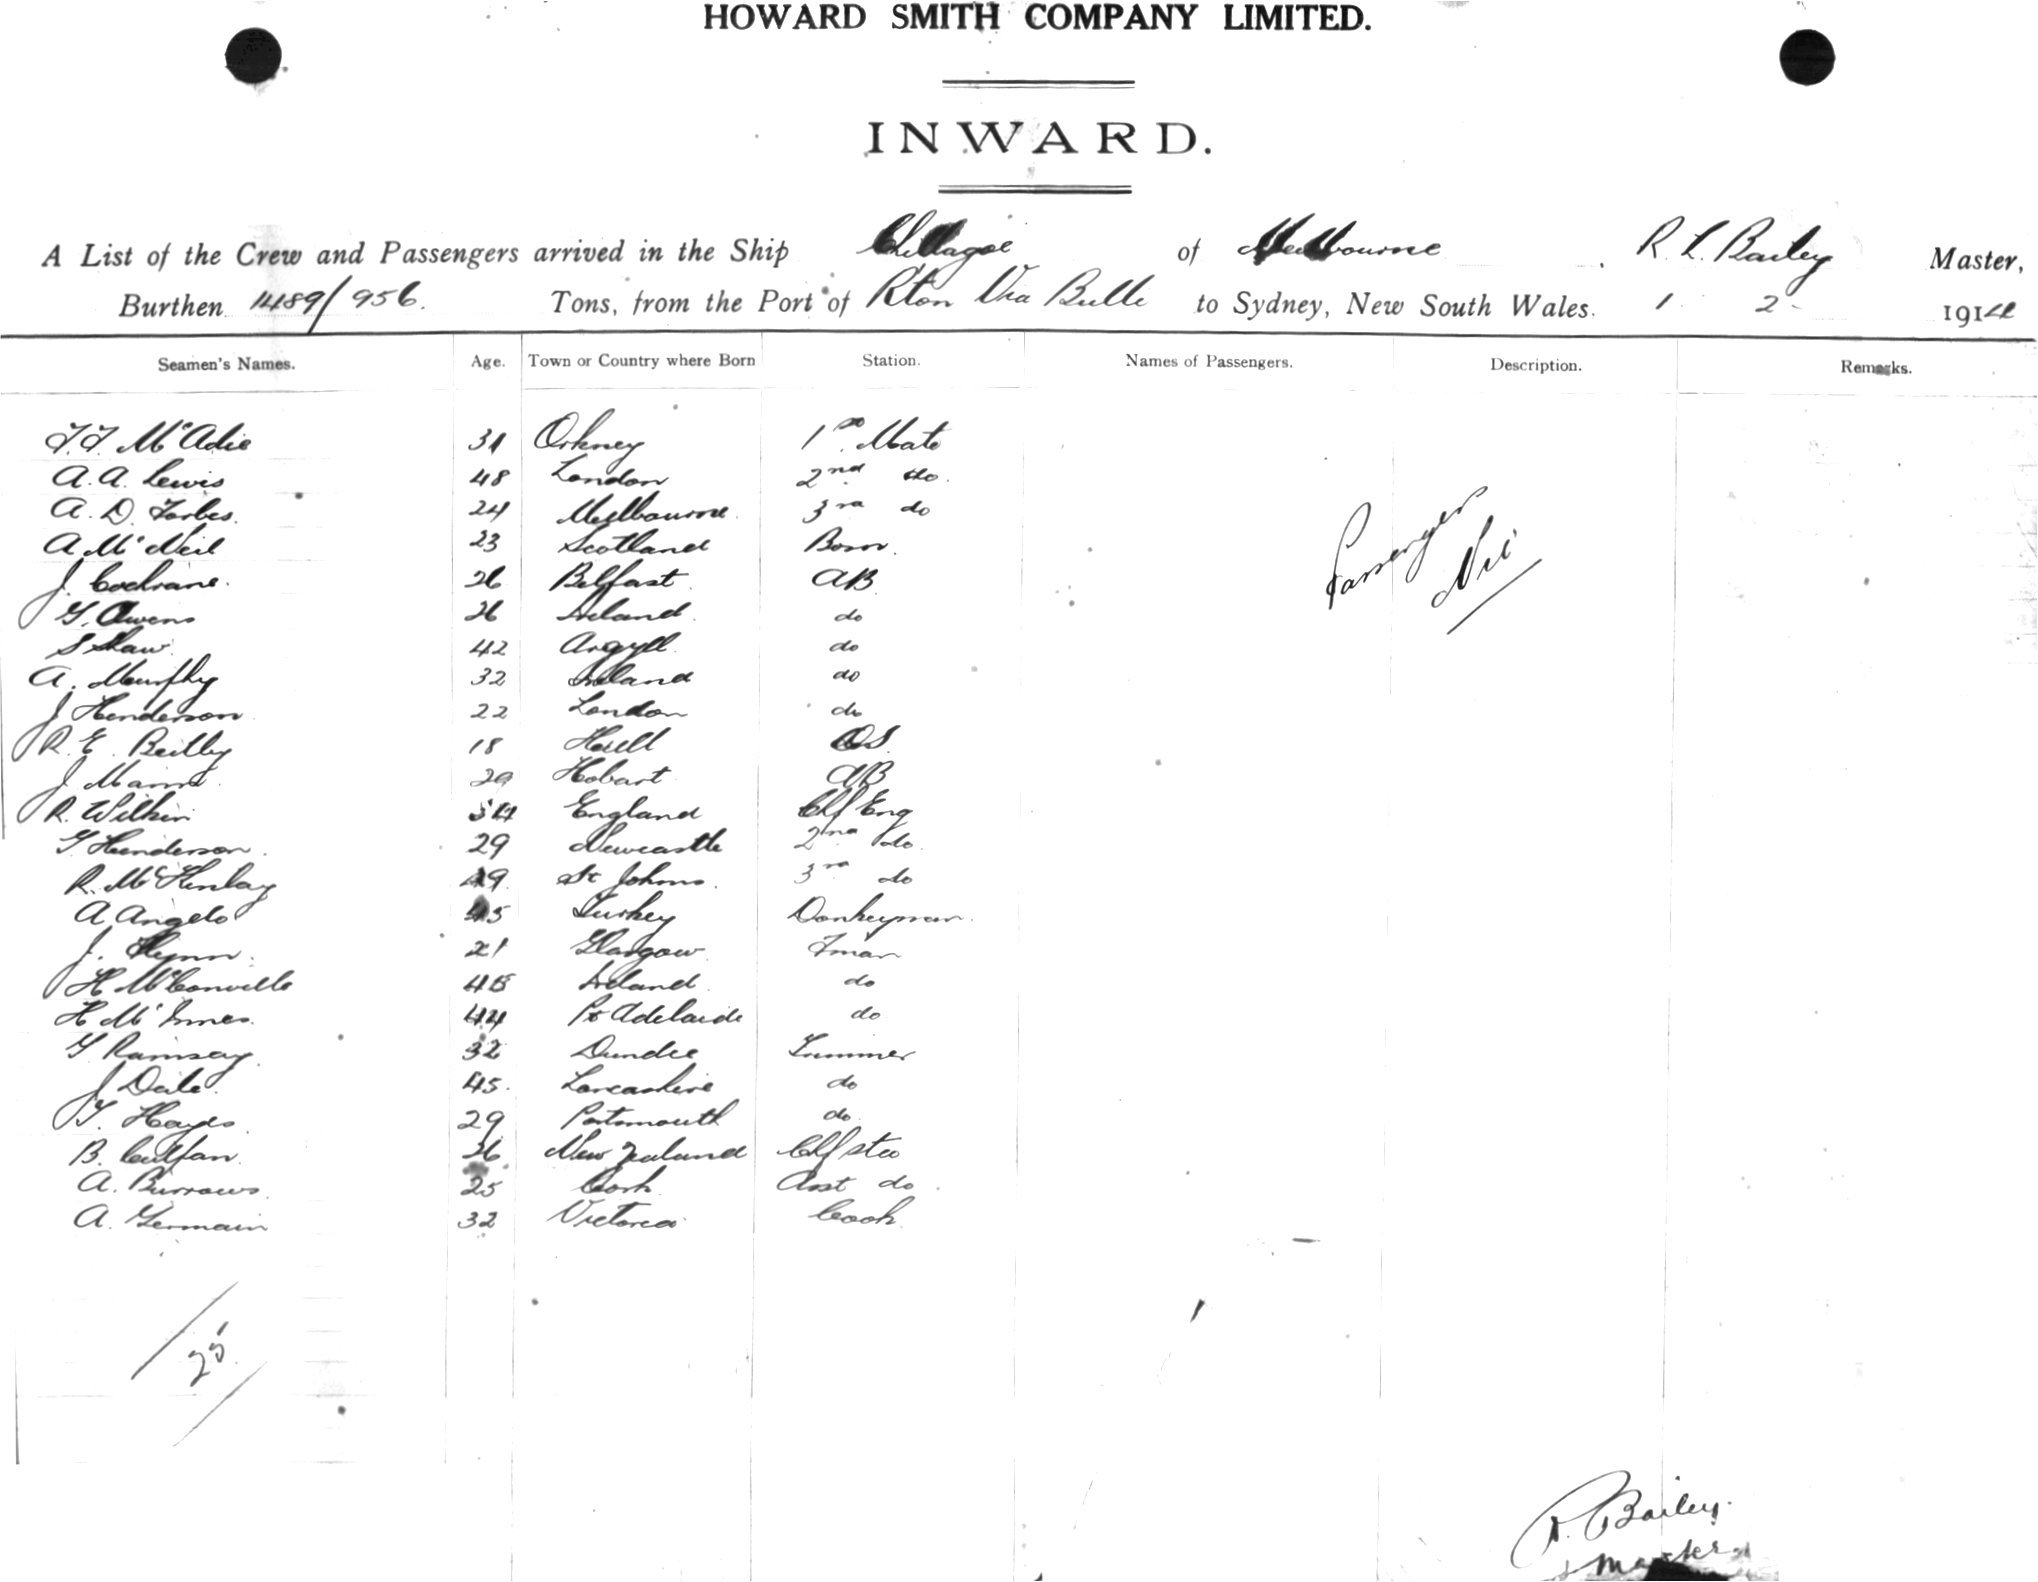 HOWARD SMITH COMPANY LIMITED.
INWARD.
A List of the Crew and Passengers arrived in the Ship Chillagoe of Melbourne R. L. Bailey Master,
Burthen 1489/956. Tons, from the Port of Rton Via Bulli to Sydney, New South Wales. 1 2 1914
Seamen's Names. Age. Town or Country where Born Station. Names of Passengers. Description. Remarks.
McAdie 31 Orkney 1st Mate
A. A. Lewis 48 London 2nd do
A. D. Forbes 24 Melbourne 3rd do
A McNeil 23 Scotland Bosn
J. Cochrane 26 Belfast AB
G. Owens 26 Ireland do
S Shaw 42 Argyll do
A. Murphy 32 Ireland do
J Henderson 22 London do
R. E. Beilby 18 Hull OS
J Mann 29 Hobart AB
R. Wilkin 34 England Chf Eng
G Henderson 29 Newcastle 2nd do
R. McKinlay 49 St Johns 3rd do
A Angelo 45 Turkey Donkeyman
J. Flynn 21 Glasgow Fman
H McConville Ireland do
H McInnes 44 Pt Adelaide do
G Ramsay 32 Dundee Trimmer
J Dale 45 Lancashire do
T. Hayes 29 Portsmouth do
B. 26 New Zealand Chf Stw
A. Burrows 25 Cork Asst do
A. Germain 32 Victoria Cook
Passenger
Nil
25
R. Bailey
Master